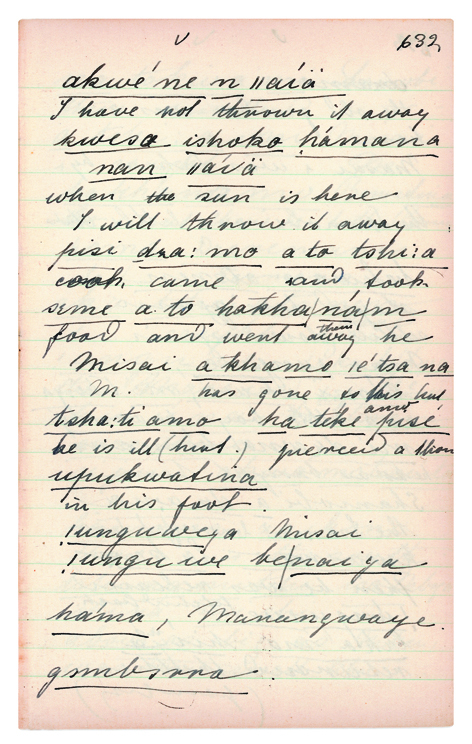 632
akwé'ne n ǁáíä
I have not thrown it away
kwesa ishoko ḥámana
nan ǁáíä
when the sun is here
I will throw it away
pisi dza:mo ato tshi:a
came and took
seme a to hakha/ná/m
food and went away he
them
Misai a khamo ǀé'tsa na
M. has gone to his hut
tsha:ti amo ha teke pisé
he is ill (hurt.) pierced a thorn
and
upukwatina
in his foot.
!unguweya Misai
!unguwe be/naiya
háma, Manangwaye.